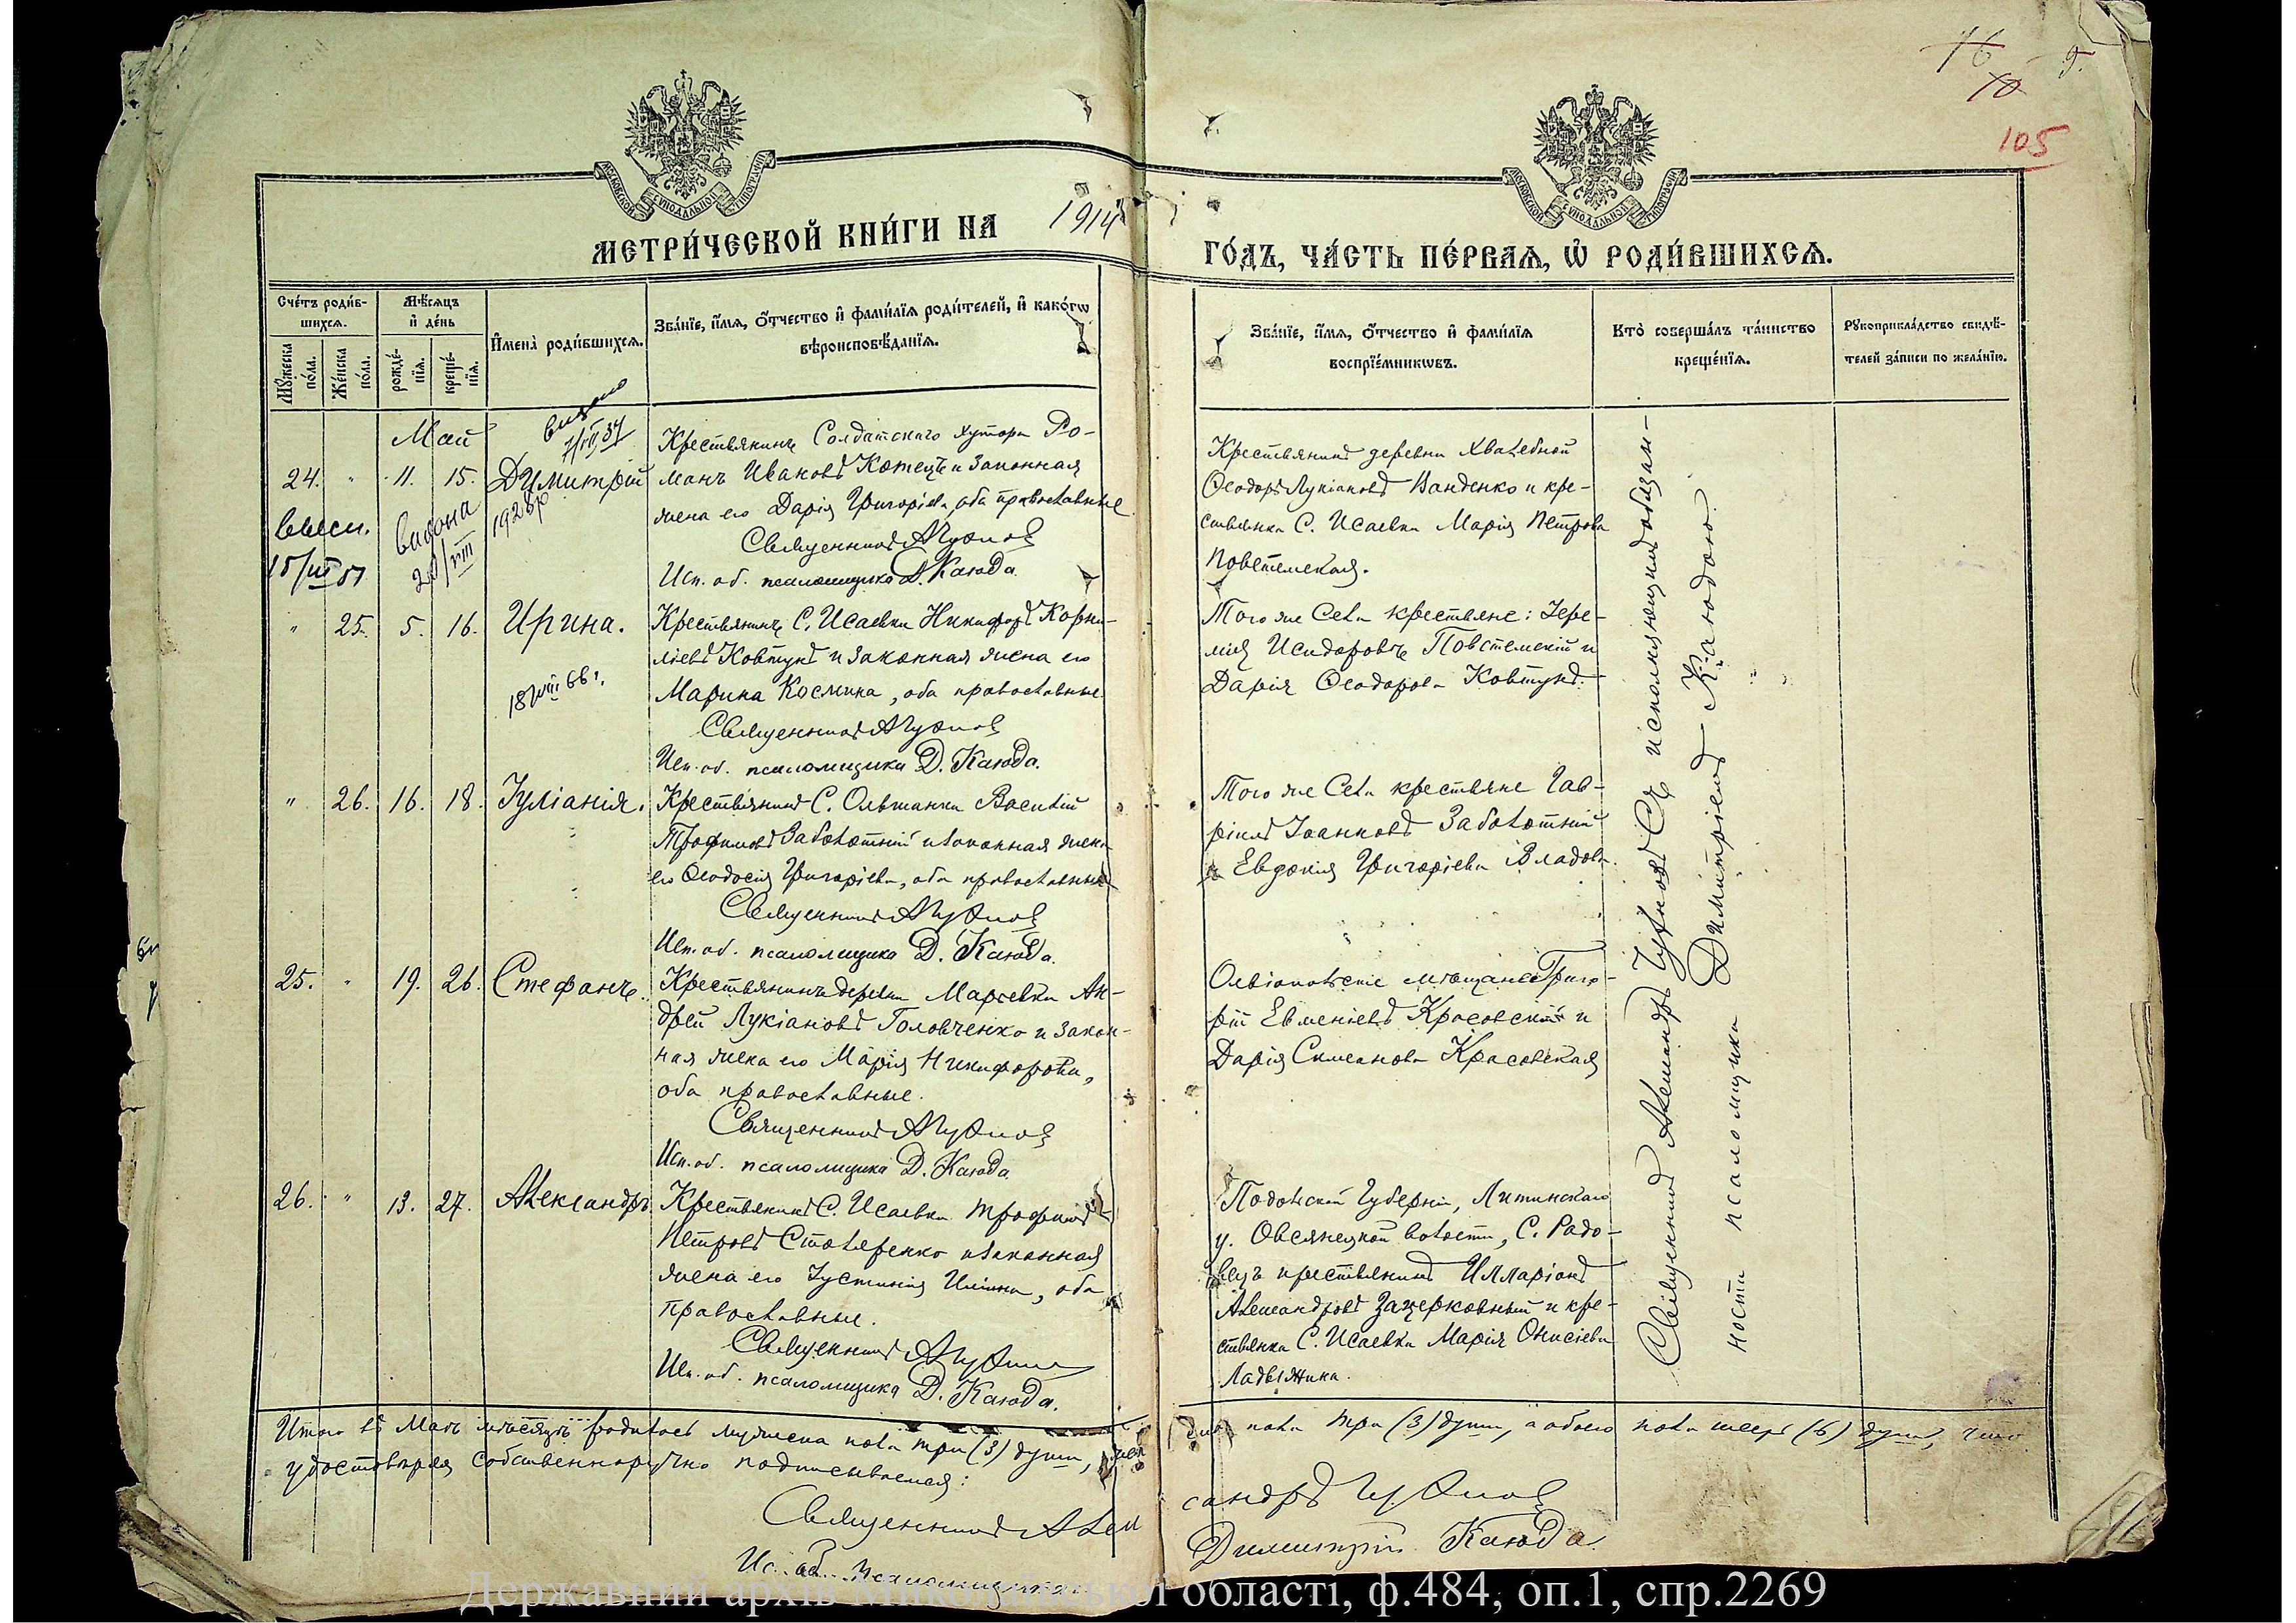 16 9.
10
105
МОСКОВСКОЙ СУНОДАЛЬНОЙ ТИПОГРАФІИ
МОСКОВСКОЙ СУНОДАЛЬНОЙ ТИПОГРАФІИ
МЕТРИ́ЧЕСКОЙ КНИ́ГИ НА 1914
ГО́ДЪ, ЧА́СТЬ ПЕ́РВАѦ, Ѡ҆ РОДИ́ВШИХСѦ.
Сче́тъ роди́в-
шихсѧ.
Мꙋ́жеска по́ла.
Же́нска по́ла.
Мѣ́сѧцъ
и҆ де́нь
рожде́-нїѧ.
креще́-нїѧ.
И҆мена̀ роди́вшихсѧ.
Зва́нїе, и҆́мѧ, ѻ҆́тчество и҆ фами́лїѧ роди́телей, и҆ како́гѡ
вѣроисповѣ́данїѧ.
Зва́нїе, и҆́мѧ, ѻ҆́тчество и҆ фами́лїѧ
воспрїе́мникѡвъ.
Кто̀ соверша́лъ та́инство
креще́нїѧ.
Рꙋкоприкла́дство свидѣ́-
телей за́писи по жела́нїю.
Май
24. " 11. 15. Димитрій
1928р
видана
20/VIII
Крестьянинъ Солдатскаго хутора Ро-
манъ Ивановъ Котецъ и законная
жена его Дарія Григоріева, оба православные
Священникъ А Чужновъ
Исп. об. псаломщика Д. Каюда.
Крестьянинъ деревни Хвалебной
Ѳеодоръ Лукіановъ Ванденко и кре-
стьянка С. Исаевки Марія Петрова
Повстемская.
" 25. 5. 16. Ирина.
18/VIII 66 г.
Крестьянинъ С. Исаевки Никифоръ Корни-
ліевъ Ковтунъ и законная жена его
Марина Космина, оба православные
Священникъ А Чужновъ
Исп. об. псаломщика Д. Каюда.
Того же Села крестьяне: Іере-
мія Исидоровъ Повстемскій и
Дарія Ѳеодорова Ковтунъ.
" 26. 16. 18. Іуліанія.
Крестьянинъ С. Ольшанки Василій
Трофимовъ Заболотній и законная жена
его Ѳеодосія Григоріева, оба православные
Священникъ А Чужновъ
Исп. об. псаломщика Д. Каюда.
Того же Села крестьяне Гав-
ріилъ Іоанновъ Заболотній
и Евдокія Григоріева Владова.
25. " 19. 26. Стефанъ.
Крестьянинъ деревни Марьевки Ан-
дрей Лукіановъ Головченко и закон-
ная жена его Марія Никифорова,
оба православные.
Священникъ А Чужновъ
Исп. об. псаломщика Д. Каюда
Ольвіопольскіе мѣщане Григо-
рій Евменіевъ Красовскій и
Дарія Симеонова Красовская
26. " 13. 27. Александръ
Крестьянинъ С. Исаевки Трофимъ
Петровъ Столяренко и законная
жена его Іустинія Иліина, оба
православные.
Священникъ А Чужновъ
Исп. об. псаломщика Д. Каюда.
Подольской Губерніи, Литинскаго
у. Овсянецкой волости, С. Радо-
вецъ крестьянинъ Илларіонъ
Александровъ Зацерковный и кре-
стьянка С. Исаевки Марія Онисіева
Ладыжина.
Священникъ Александръ Чужновъ Съ исполняющимъ обязан-
ности псаломщика Димитріемъ Каюдою
Итого въ Маѣ мѣсяцѣ родилось мужеска пола три (3) души, жен
ска пола три (3) души, а обоего пола шесть (6) душъ, что
удостовѣряя собственноручно подписываемся:
Священникъ Алек
сандръ Чужновъ
Ис. об. псаломщика
Димитрій Каюда
Державний архів Миколаївської області, ф.484, оп.1, спр.2269